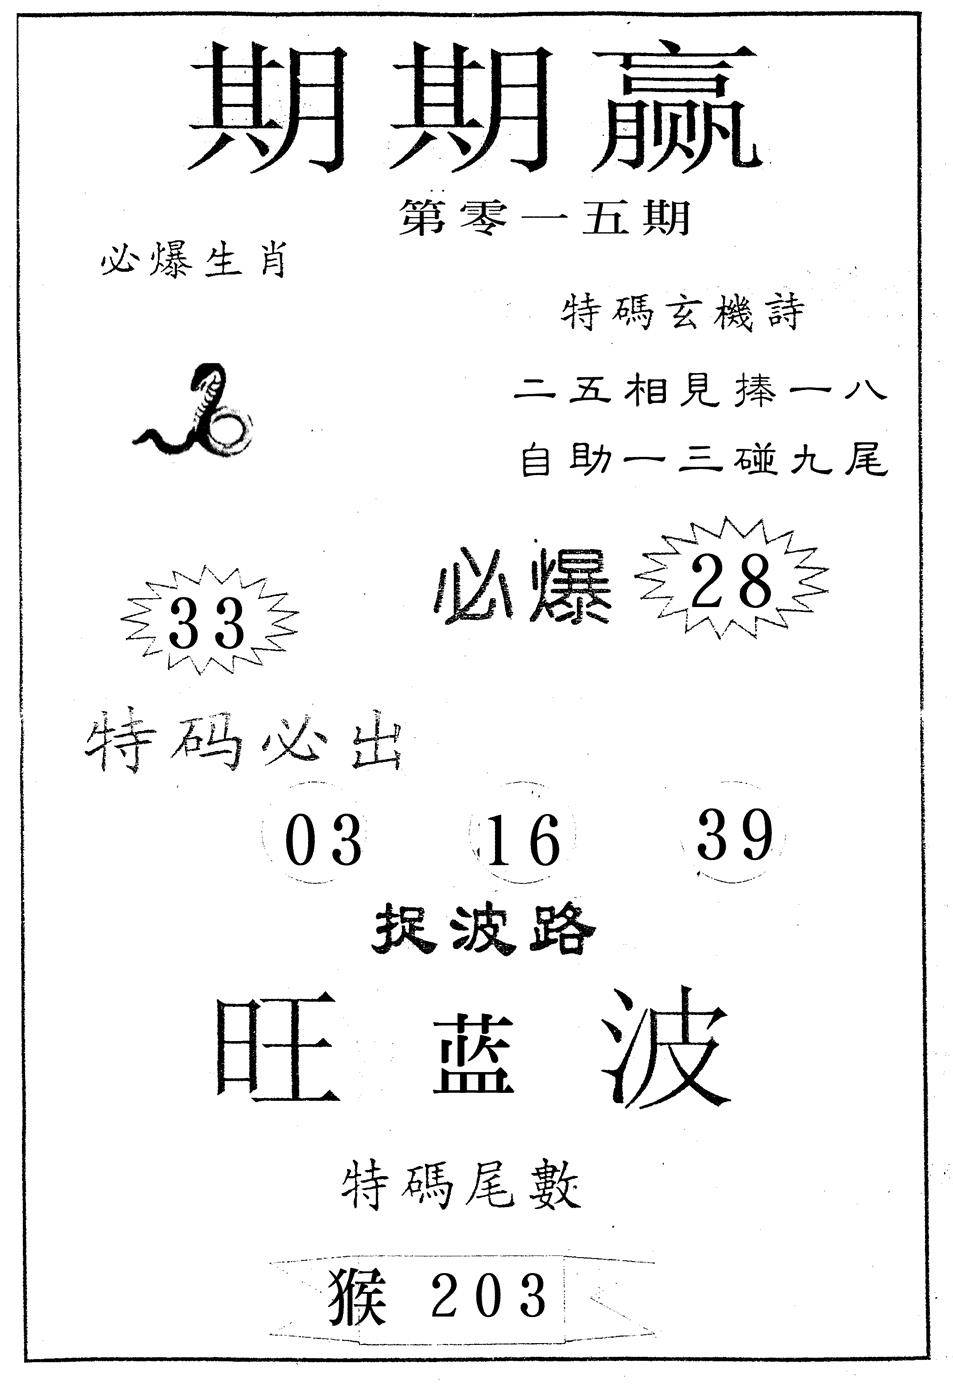 期期赢
第零一五期
必爆生肖
特碼玄機詩
二五相見捧一八
自助一三碰九尾
必爆 28
33
特码必出
03 16 39
捉波路
旺蓝波
特碼尾數
猴 203